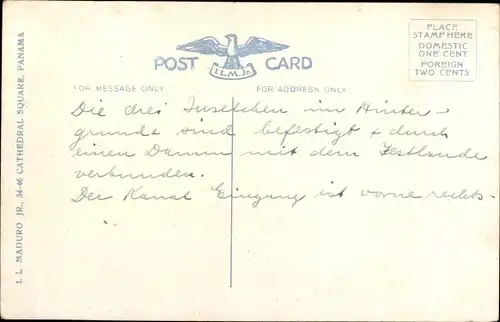 PLACE
STAMP HERE
DOMESTIC
ONE CENT
FOREIGN
TWO CENTS
I. L. M. Jr.
POST CARD
FOR MESSAGE ONLY
FOR ADDRESS ONLY
Die drei Inselchen im Hinter-
grunde sind befestigt + durch
einen Damm mit dem Festlande
verbunden.
Der Kanal Eingang ist vorne rechts.
I. L. MADURO JR., 34-46 CATHEDRAL SQUARE, PANAMA